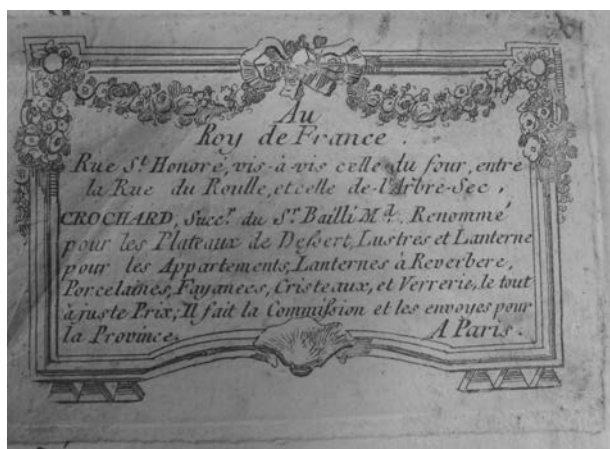 Au
Roy de France.
Rue St. Honoré, vis-à-vis celle du four, entre
la Rue du Roulle, et celle de l'Arbre-Sec,
CROCHARD, Succr. du Sr. Bailli Md. Renommé
pour les Plateaux de Dessert, Lustres et Lanterne
pour les Appartements, Lanternes à Reverbere,
Porcelaines, Fayances, Cristeaux, et Verrerie, le tout
à juste Prix; Il fait la Commission et les envoyes pour
la Province. A Paris.